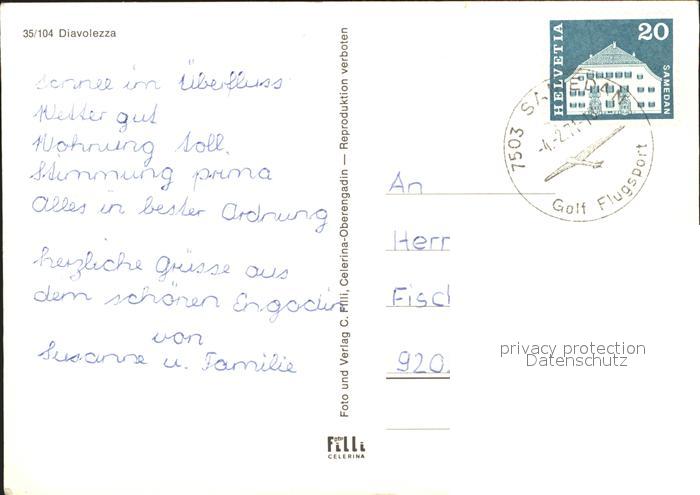 35/104 Diavolezza
Sonnee im Überfluss
Wetter gut
Wohnung toll.
Stimmung prima
Alles in bester Ordnung
herzliche Grüsse aus
dem schönen Engadin
von
Susanne u. Familie
Foto und Verlag C. Filli, Celerina-Oberengadin — Reproduktion verboten
Foto Filli
CELERINA
HELVETIA
20
SAMEDAN
7503 SAMEDAN
-4.-2.71-
Golf Flugsport
An
Herr
Fisc
920.
privacy protection
Datenschutz